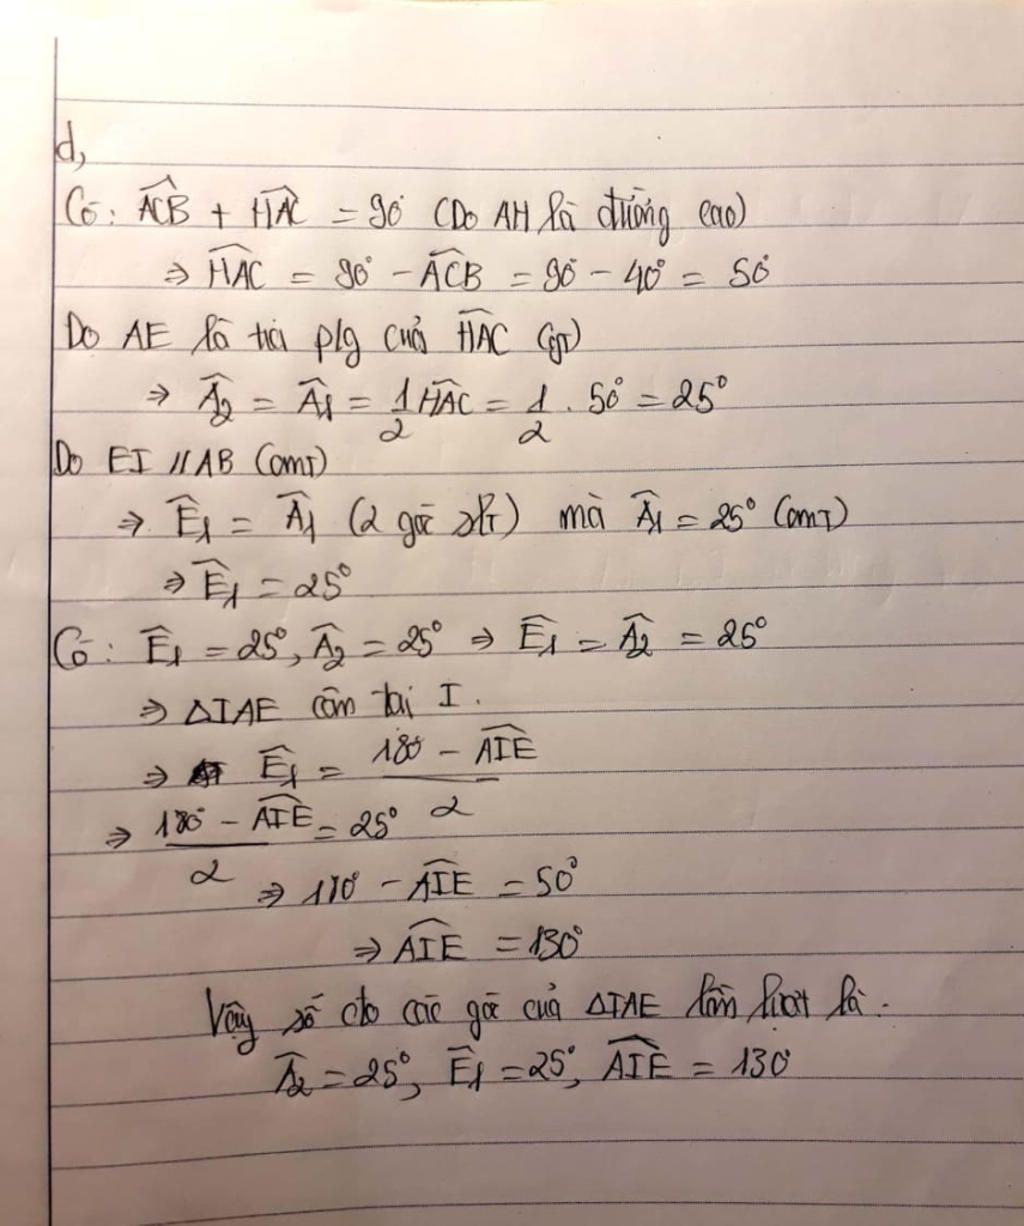 d,
Có: ACB + HAC = 90° (Do AH là đường cao)
⇒ HAC = 90° - ACB = 90° - 40° = 50°
Do AE là tia p/g của HAC (gt)
⇒ A2 = A1 = 1/2 HAC = 1/2 . 50° = 25°
Do EI // AB (cmt)
⇒ E1 = A1 (2 góc slt) mà A1 = 25° (cmt)
⇒ E1 = 25°
Có: E1 = 25°, A2 = 25° ⇒ E1 = A2 = 25°
⇒ ΔIAE cân tại I.
⇒ E1 = (180° - AIE)/2
⇒ (180° - AIE)/2 = 25°
⇒ 180° - AIE = 50°
⇒ AIE = 130°
Vậy số đo các góc của ΔIAE lần lượt là:
A2 = 25°, E1 = 25°, AIE = 130°